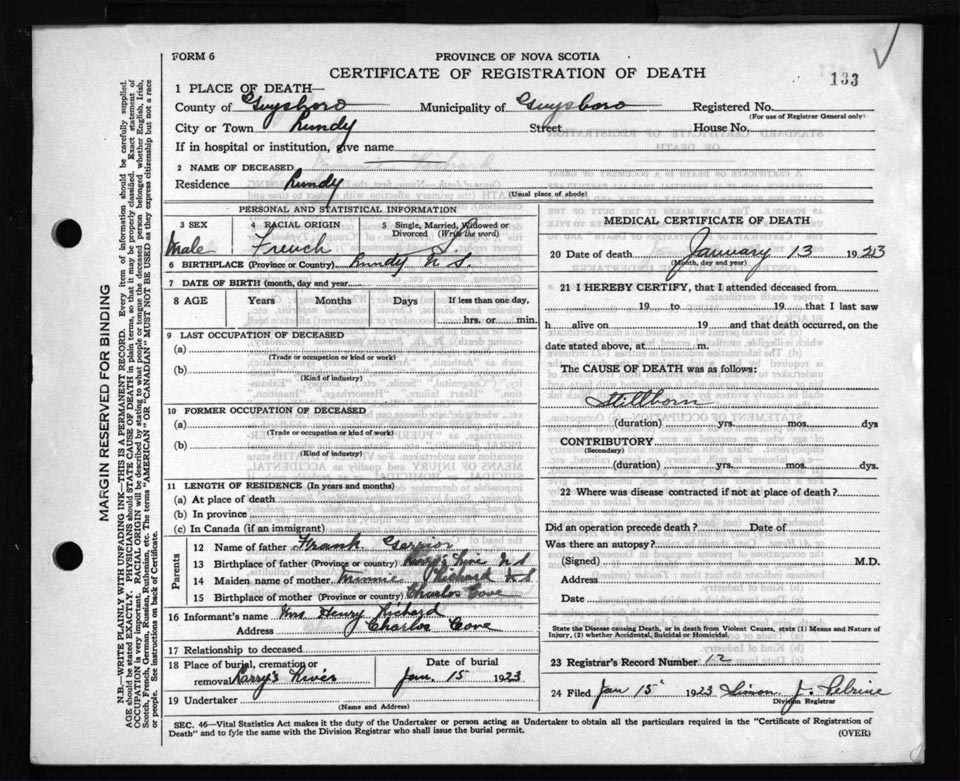 FORM 6
PROVINCE OF NOVA SCOTIA
CERTIFICATE OF REGISTRATION OF DEATH
133
MARGIN RESERVED FOR BINDING
N.B.—WRITE PLAINLY WITH UNFADING INK—THIS IS A PERMANENT RECORD. Every item of information should be carefully supplied.
AGE should be stated EXACTLY. PHYSICIANS should STATE CAUSE OF DEATH in plain terms, so that it may be properly classified. Exact statement of
OCCUPATION is very important. RACIAL ORIGIN will be described by stating to which people or tongue the deceased person belonged whether English, Irish,
Scotch, French, German, Russian, Ruthenian, etc. The terms "AMERICAN" OR "CANADIAN" MUST NOT BE USED as they express citizenship but not a race
or people. See instructions on back of Certificate.
1 PLACE OF DEATH—
County of Guysboro Municipality of Guysboro Registered No.
(For use of Registrar General only)
City or Town Lundy Street House No.
If in hospital or institution, give name
2 NAME OF DECEASED
Residence Lundy
(Usual place of abode)
PERSONAL AND STATISTICAL INFORMATION
3 SEX 4 RACIAL ORIGIN 5 Single, Married, Widowed or
Divorced (Write the word)
Male French S.
6 BIRTHPLACE (Province or Country) Lundy N.S.
7 DATE OF BIRTH (month, day and year)
8 AGE Years Months Days If less than one day,
hrs. or min.
9 LAST OCCUPATION OF DECEASED
(a)
(Trade or occupation or kind or work)
(b)
(Kind of industry)
10 FORMER OCCUPATION OF DECEASED
(a)
(Trade or occupation or kind of work)
(b)
(Kind of industry)
11 LENGTH OF RESIDENCE (In years and months)
(a) At place of death
(b) In province
(c) In Canada (if an immigrant)
Parents
12 Name of father Frank
13 Birthplace of father (Province or country) N S
14 Maiden name of mother Minnie Richard N S
15 Birthplace of mother (Province or country) Charlos Cove
16 Informant's name Mrs Henry Richard
Address Charlos Cove
17 Relationship to deceased
18 Place of burial, cremation or Date of burial
removal Larry's River Jan. 15 1923
19 Undertaker
(Name and Address)
MEDICAL CERTIFICATE OF DEATH
20 Date of death January 13 1923
(Month, day and year)
21 I HEREBY CERTIFY, that I attended deceased from
19 to 19 that I last saw
h alive on 19 and that death occurred, on the
date stated above, at m.
The CAUSE OF DEATH was as follows:
Stillborn
(duration) yrs. mos. dys
CONTRIBUTORY
(Secondary)
(duration) yrs. mos. dys.
22 Where was disease contracted if not at place of death?
Did an operation precede death? Date of
Was there an autopsy?
(Signed) M.D.
Address
Date
State the Disease causing Death, or in death from Violent Causes, state (1) Means and Nature of
Injury, (2) whether Accidental, Suicidal or Homicidal.
23 Registrar's Record Number 12
24 Filed Jan 15 1923 Simon J.
Division Registrar
SEC. 46—Vital Statistics Act makes it the duty of the Undertaker or person acting as Undertaker to obtain all the particulars required in the "Certificate of Registration of
Death" and to fyle the same with the Division Registrar who shall issue the burial permit.
(OVER)